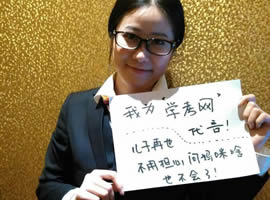 我为“学考网”
代言！
儿子再也
不用担心问妈咪啥
也不会了！